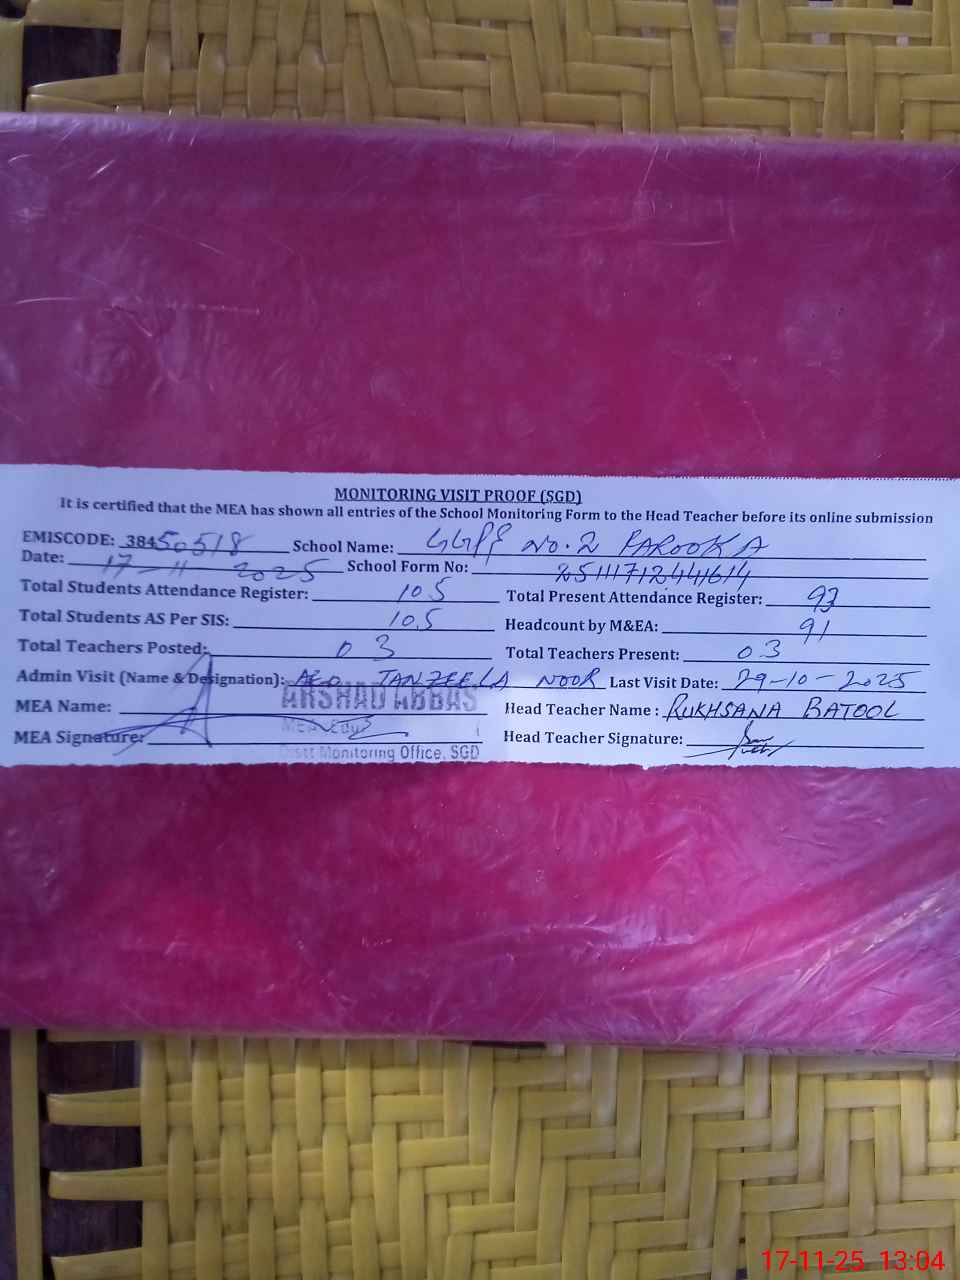 MONITORING VISIT PROOF (SGD)
It is certified that the MEA has shown all entries of the School Monitoring Form to the Head Teacher before its online submission
EMISCODE: 38450518 School Name: GGPS No. 2 FAROOKA
Date: 17-11-2025 School Form No:
Total Students Attendance Register: 105 Total Present Attendance Register: 93
Total Students AS Per SIS: 105 Headcount by M&EA: 91
Total Teachers Posted: 03 Total Teachers Present: 03
Admin Visit (Name & Designation): AEO TANZEELA NOOR Last Visit Date: 29-10-2025
MEA Name: ARSHAD ABBAS Head Teacher Name : RUKHSANA BATOOL
MEA
MEA Signature: Distt Monitoring Office, SGD Head Teacher Signature:
17-11-25 13:04